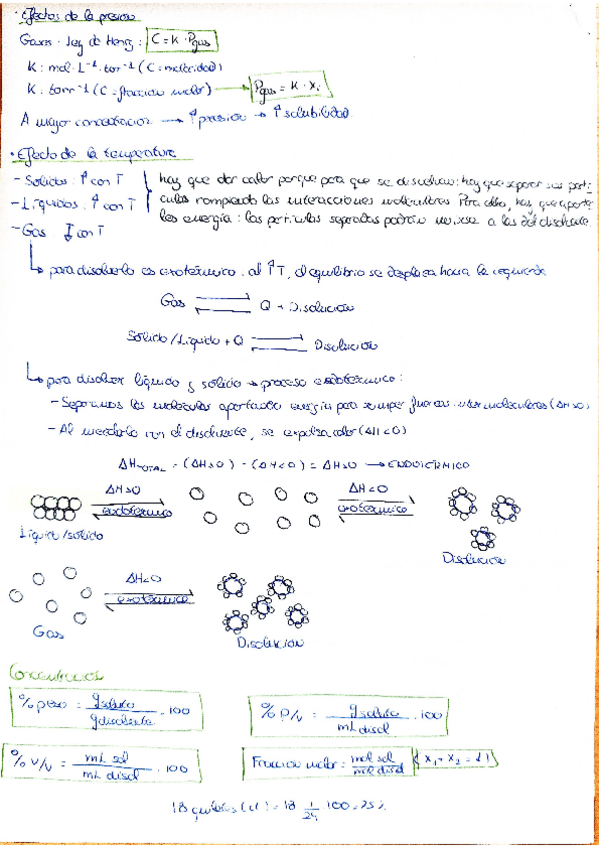 · Efectos de la presión
Gases · Ley de Henry : C = K · Pgas
K : mol · L⁻¹ · torr⁻¹ (C = molaridad)
K : torr⁻¹ (C = fracción molar) → Pgas = K · Xi
A mayor concentración → ↑ presión → ↑ solubilidad
· Efecto de la temperatura
- Sólidos : ↑ con T
- Líquidos : ↑ con T
- Gas ↓ con T
hay que dar calor porque para que se disuelvan : hay que separar sus partí-
culas rompiendo las interacciones moleculares. Para ello, hay que aportar-
les energía : las partículas separadas podrán unirse a las del disolvente.
para disolverlo es exotérmico. al ↑T, el equilibrio se desplaza hacia la izquierda
Gas ⇌ Q + Disolución
Sólido / Líquido + Q ⇌ Disolución
para disolver líquido y sólido → proceso endotérmico :
- Separamos las moléculas aportando energía para romper fuerzas intermoleculares (ΔH>0)
- Al mezclarlo con el disolvente, se expulsa calor (ΔH<0)
ΔH TOTAL = (ΔH>0) - (ΔH<0) = ΔH>0 → ENDOTÉRMICO
ΔH>0
endotérmico
ΔH<0
exotérmico
Líquido / sólido
Disolución
ΔH<0
exotérmico
Gas
Disolución
Concentraciones
% peso = g soluto / g disolvente · 100
% P/V = g soluto / mL disol · 100
% V/V = mL sol / mL disol · 100
Fracción molar = mol sol / mol disol (X₁ + X₂ = 1)
18 (1) = 18 1/24 100 = 75 %